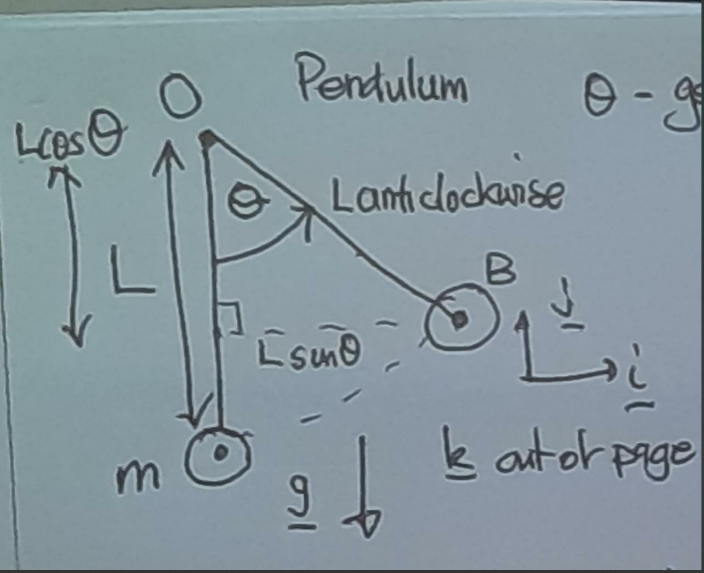 O Pendulum θ -
Lcosθ
θ L anticlockwise
L
B
j
Lsinθ
i
m
g
k out of page